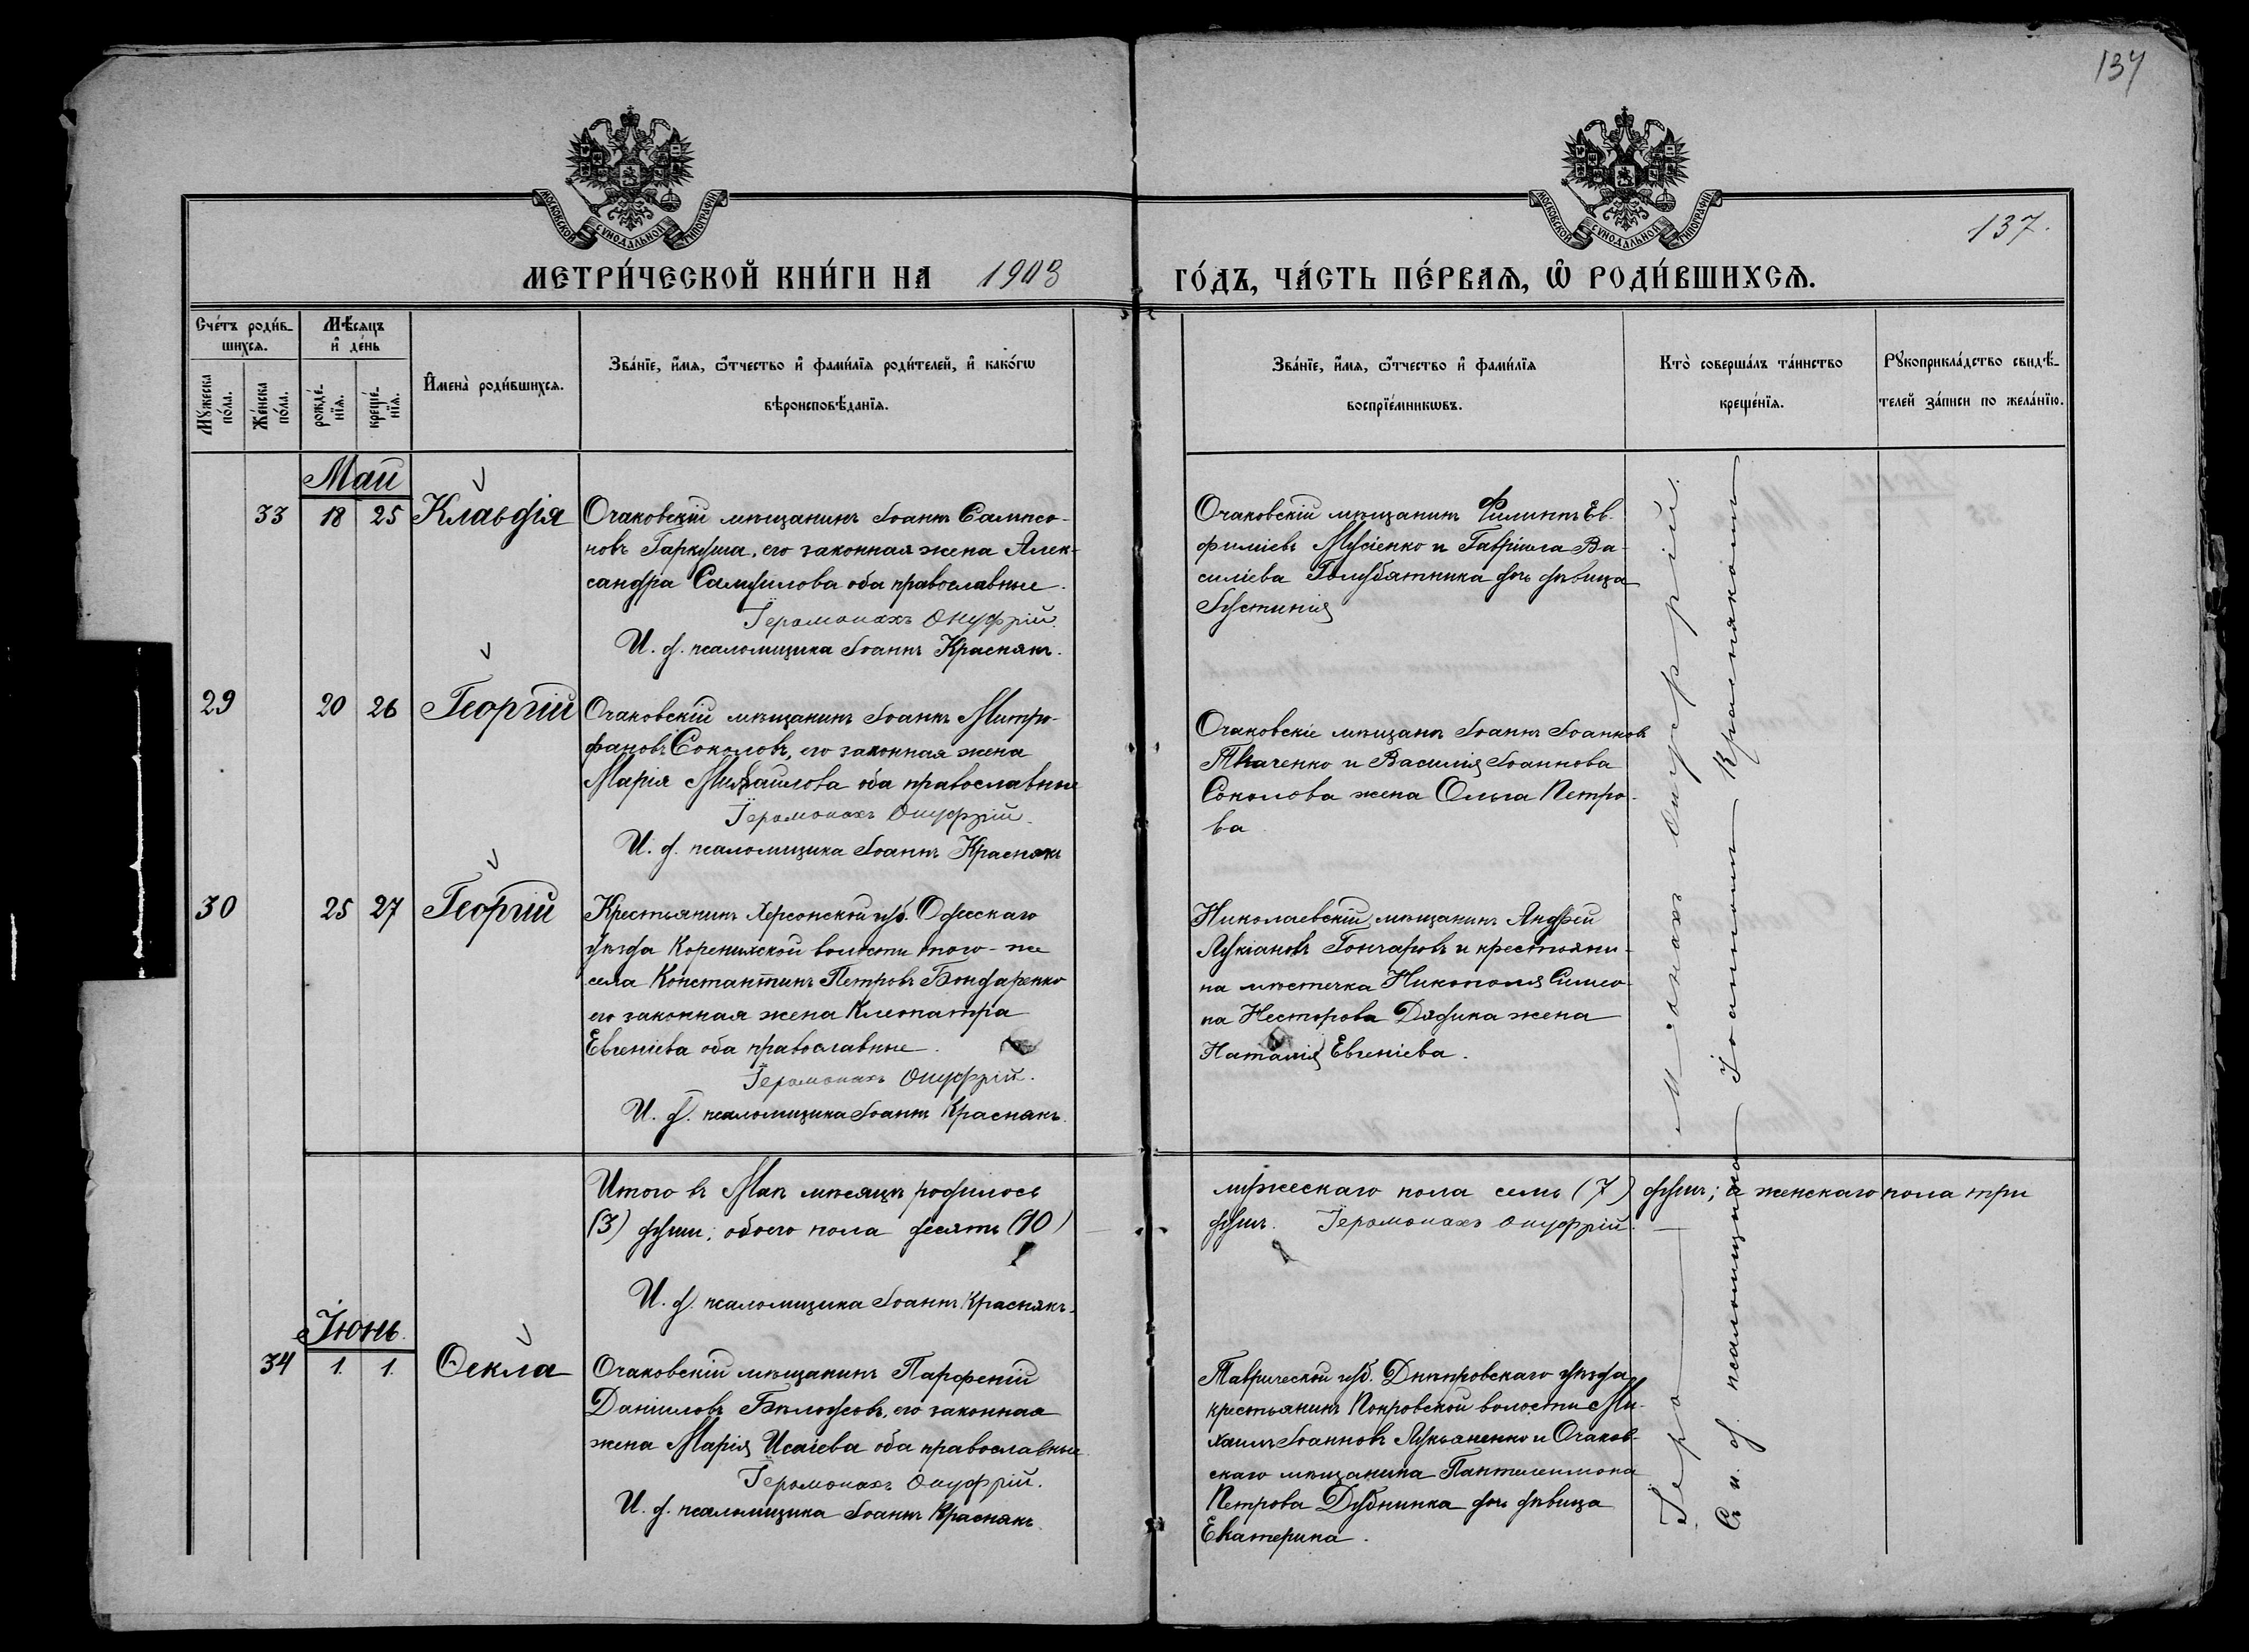 137
МОСКОВСКОЙ СѴНОДАЛЬНОЙ ТИПОГРАФІИ
МОСКОВСКОЙ СѴНОДАЛЬНОЙ ТИПОГРАФІИ
137.
МЕТРИ́ЧЕСКОЙ КНИ́ГИ НА 1903 ГО́ДЪ, ЧА́СТЬ ПЕ́РВАѦ, Ѽ РОДИ́ВШИХСѦ.
Сче́тъ роди́в-
шихсѧ.
Мѣ́сѧцъ
и҆ де́нь
Мꙋ́жеска
по́ла.
Же́нска
по́ла.
рожде́-
нїѧ.
креще́-
нїѧ.
И҆мена̀ роди́вшихсѧ.
Зва́нїе, и҆́мѧ, ѻ҆́тчество и҆ фами́лїѧ роди́телей, и҆ како́гѡ
вѣроисповѣ́данїѧ.
Зва́нїе, и҆́мѧ, ѻ҆́тчество и҆ фами́лїѧ
воспрїе́мникѡвъ.
Кто̀ соверша́лъ та́инство
креще́нїѧ.
Рꙋкоприкла́дство свидѣ́-
телей за́писи по жела́нїю.
Май
33 18 25 Клавдія
Очаковскій мѣщанинъ Іоаннъ Сампсо-
новъ Гаркуша, его законная жена Алек-
сандра Самуилова оба православные.
Іеромонахъ Онуфрій.
И. д. псаломщика Іоаннъ Краснякъ.
Очаковскій мѣщанинъ Филиппъ Ев-
фиміевъ Мусіенко и Гавріила Ва-
силіева Голубятника дочь дѣвица
Іустинія
29 20 26 Георгій
Очаковскій мѣщанинъ Іоаннъ Митро-
фановъ Соколовъ, его законная жена
Марія Михаилова оба православные
Іеромонахъ Онуфрій.
И. д. псаломщика Іоаннъ Краснякъ
Очаковскіе мѣщане Іоаннъ Іоанновъ
Ткаченко и Василія Іоаннова
Соколова жена Ольга Петро-
ва
30 25 27 Георгій
Крестьянинъ Херсонской губ. Одесскаго
уѣзда Коренихской волости того-же
села Константинъ Петровъ Бондаренко
его законная жена Клеопатра
Евгеніева оба православные.
Іеромонахъ Онуфрій.
И. д. псаломщика Іоаннъ Краснякъ.
Николаевскій мѣщанинъ Андрей
Лукіановъ Гончаровъ и крестьяни-
на мѣстечка Никополя Симео-
на Несторова Дядика жена
Наталія Евгеніева.
Итого въ Маѣ мѣсяцѣ родилось мужескаго пола семь (7) душъ; а женскаго пола три
(3) души; обоего пола десять (10) душъ. Іеромонахъ Онуфрій.
И. д. псаломщика Іоаннъ Краснякъ.
Іюнь.
34 1. 1. Ѳекла
Очаковскій мѣщанинъ Парфеній
Даніиловъ Бѣлоусовъ, его законная
жена Марія Исаіева оба православные
Іеромонахъ Онуфрій.
И. д. псаломщика Іоаннъ Краснякъ.
Таврической губ. Днѣпровскаго уѣзда
крестьянинъ Покровской волости Ми-
хаилъ Іоанновъ Лукьяненко и Очаков-
скаго мѣщанина Пантелеимона
Петрова Дубнинка дочь дѣвица
Екатерина.
Іеромонахъ Онуфрій.
Съ и. д. псаломщика Іоанномъ Краснякомъ